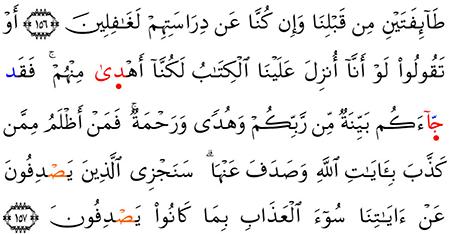 طَآئِفَتَيْنِ مِن قَبْلِنَا وَإِن كُنَّا عَن دِرَاسَتِهِمْ لَغَٰفِلِينَ ۝١٥٦ أَوْ
تَقُولُواْ لَوْ أَنَّآ أُنزِلَ عَلَيْنَا ٱلْكِتَٰبُ لَكُنَّآ أَهْدِىٰ مِنْهُمْ ۚ فَقَد
جَّآءَكُم بَيِّنَةٌ مِّن رَّبِّكُمْ وَهُدًى وَرَحْمَةٌ ۚ فَمَنْ أَظْلَمُ مِمَّن
كَذَّبَ بِـَٔايَٰتِ ٱللَّهِ وَصَدَفَ عَنْهَا ۗ سَنَجْزِى ٱلَّذِينَ يَصْدِفُونَ
عَنْ ءَايَٰتِنَا سُوٓءَ ٱلْعَذَابِ بِمَا كَانُواْ يَصْدِفُونَ ۝١٥٧